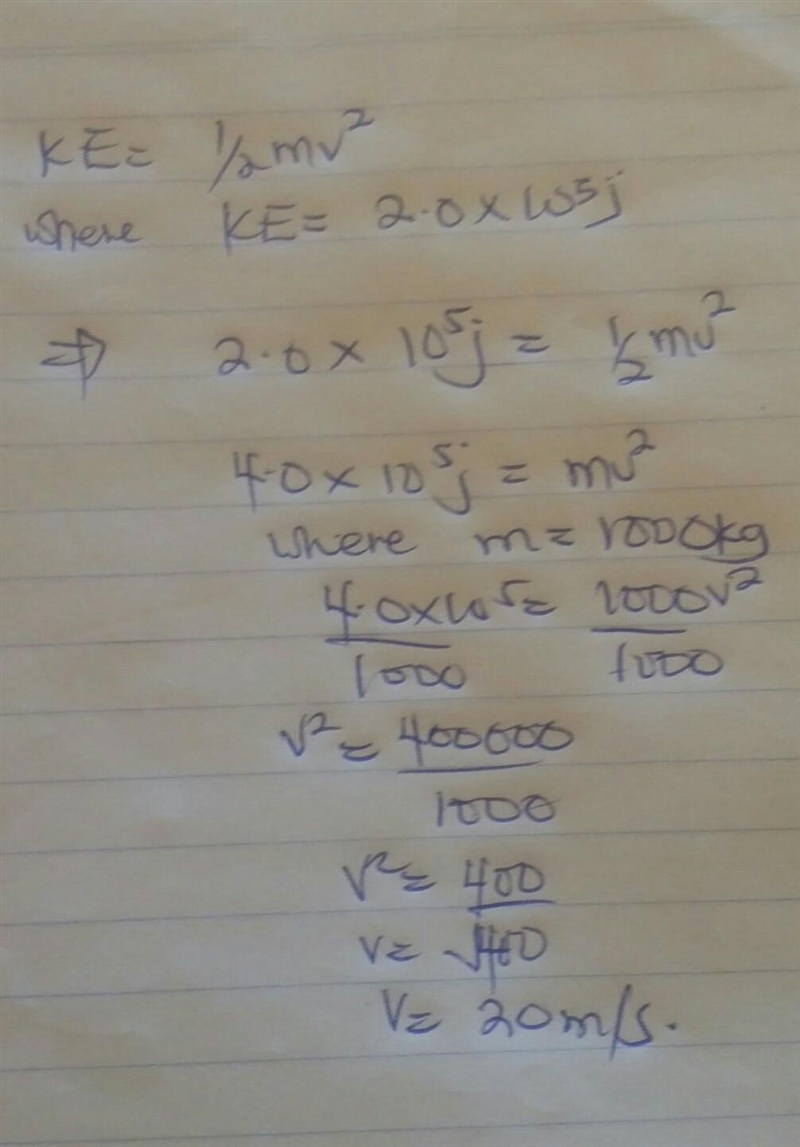 KE= ½mv²
where KE= 2.0×10⁵j
⇒ 2.0 × 10⁵j = ½mv²
4.0 × 10⁵j = mv²
where m = 1000kg
4.0×10⁵ = 1000v²
1000 1000
v² = 400000
1000
v² = 400
v = √400
v = 20m/s.